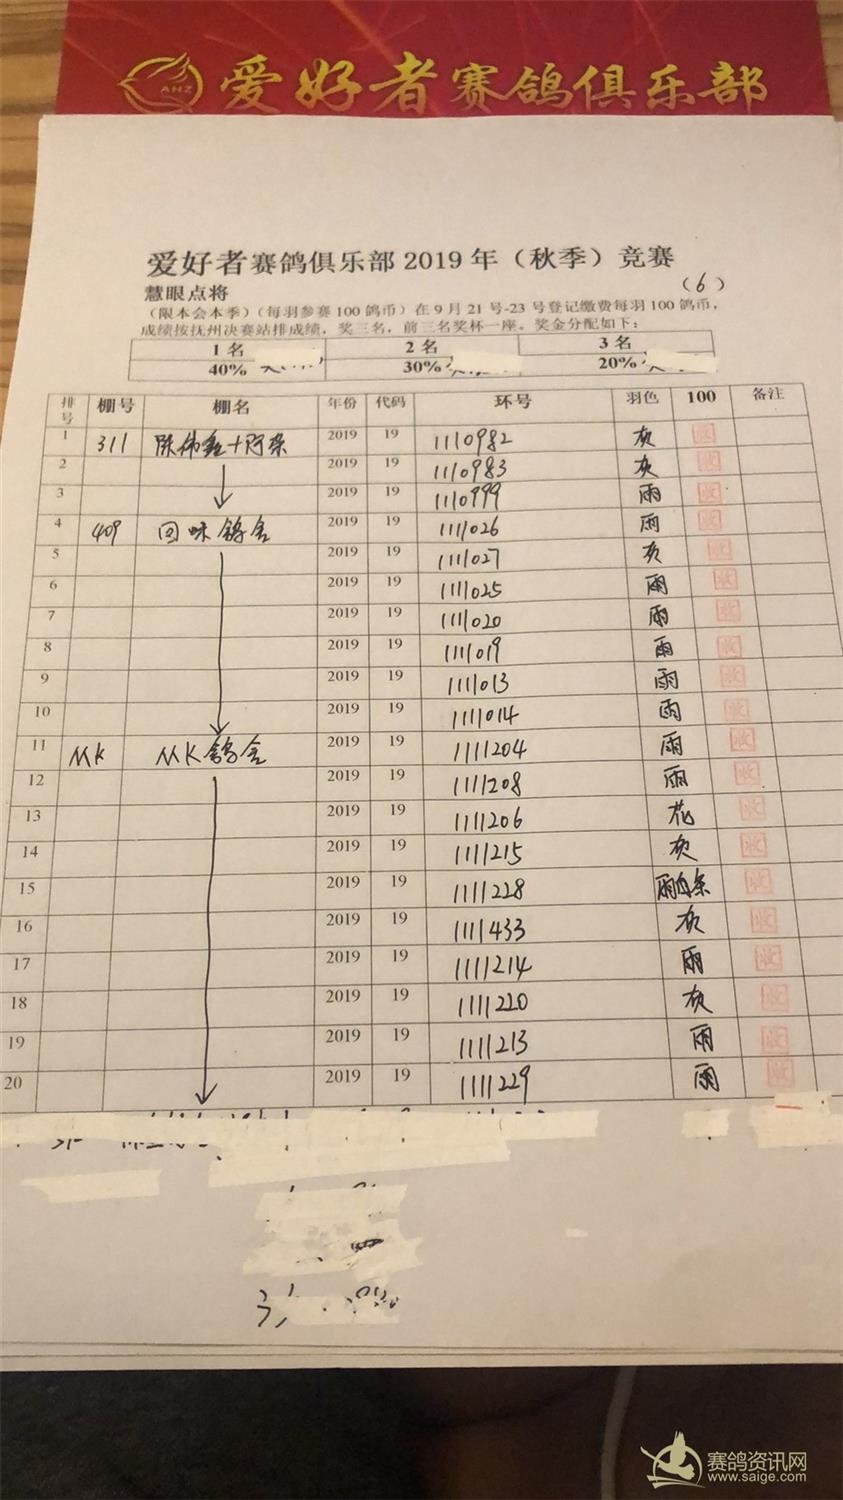 AHZ 爱好者赛鸽俱乐部
爱好者赛鸽俱乐部 2019 年（秋季）竞赛
慧眼点将 （6）
（限本会本季）（每羽参赛 100 鸽币）在 9 月 21 号-23 号登记缴费每羽 100 鸽币，
成绩按抚州决赛站排成绩，奖三名，前三名奖杯一座。奖金分配如下：
1 名 2 名 3 名
40% 30% 20%
排号 棚号 棚名 年份 代码 环号 羽色 100 备注
1 311 陈伟鑫+阿荣 2019 19 1110982 灰 收
2 2019 19 1110983 灰 收
3 2019 19 1110999 雨 收
4 409 回味鸽舍 2019 19 1111026 雨 收
5 2019 19 1111027 灰 收
6 2019 19 1111025 雨 收
7 2019 19 1111020 雨 收
8 2019 19 1111019 雨 收
9 2019 19 1111013 雨 收
10 2019 19 1111014 雨 收
11 MK MK鸽舍 2019 19 1111204 雨 收
12 2019 19 1111208 雨 收
13 2019 19 1111206 花 收
14 2019 19 1111215 灰 收
15 2019 19 1111228 雨白条 收
16 2019 19 1111433 灰 收
17 2019 19 1111214 雨 收
18 2019 19 1111220 灰 收
19 2019 19 1111213 雨 收
20 2019 19 1111229 雨 收
赛鸽资讯网
www.saige.com